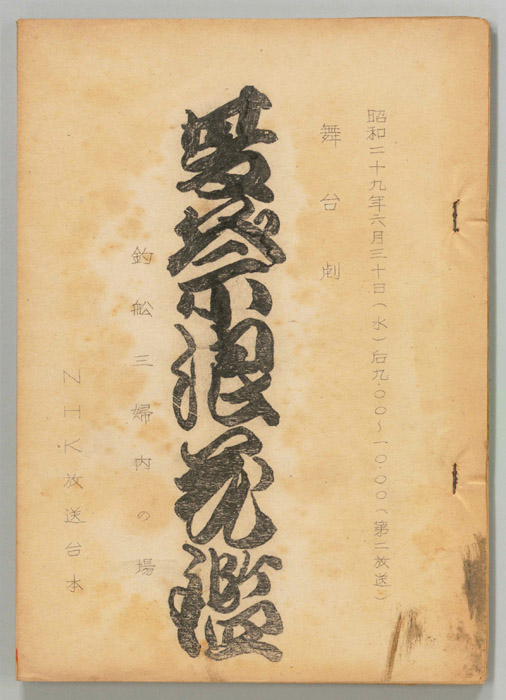 昭和二十九年六月三十日(水)后九.〇〇~一〇.〇〇(第二放送)
舞台劇
夏祭浪花鑑
釣舩三婦内の場
NHK放送台本